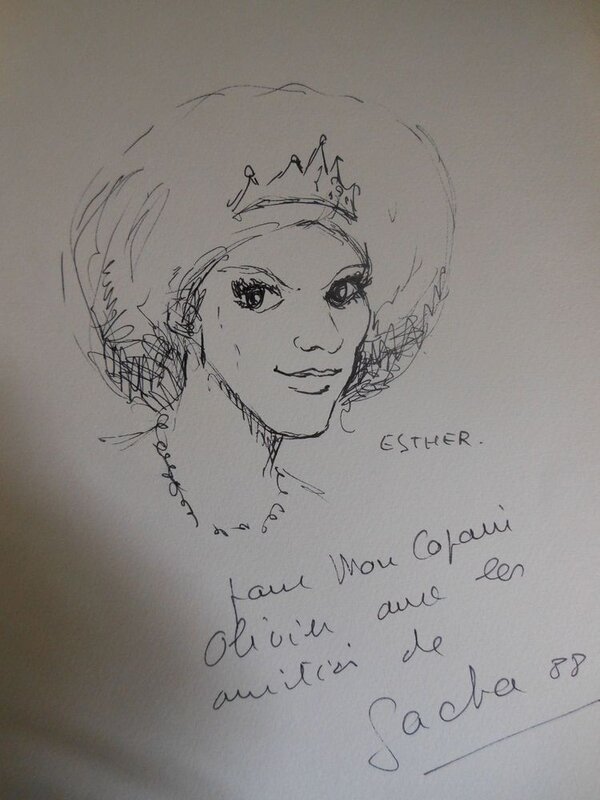 ESTHER.
pour Mon Copain
Olivier avec les
amitiés de
Sacha 88